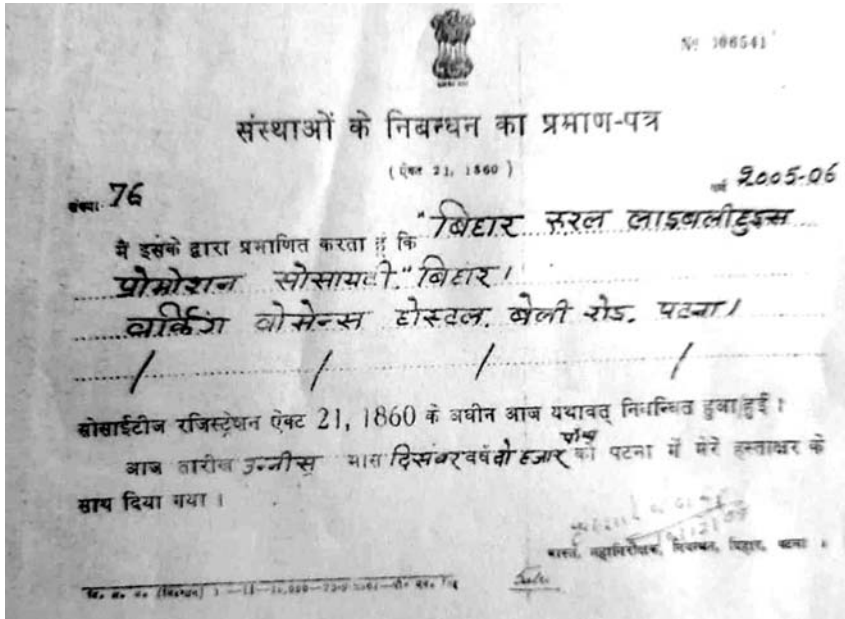 No 006541
संस्थाओं के निबन्धन का प्रमाण-पत्र
(ऐक्ट 21, 1860)
संख्या 76 वर्ष 2005-06
मैं इसके द्वारा प्रमाणित करता हूं कि "बिहार रूरल लाइवलीहुड्स
प्रोमोशन सोसायटी." बिहार।
वर्किंग वोमेन्स होस्टल, बेली रोड, पटना।
सोसाईटीज रजिस्ट्रेशन ऐक्ट 21, 1860 के अधीन आज यथावत् निबन्धित हुआ/हुई।
आज तारीख उन्नीस मास दिसंबर वर्ष दो हजार पाँच को पटना में मेरे हस्ताक्षर के
साथ दिया गया।
महानिरीक्षक, निबन्धन, बिहार, पटना।